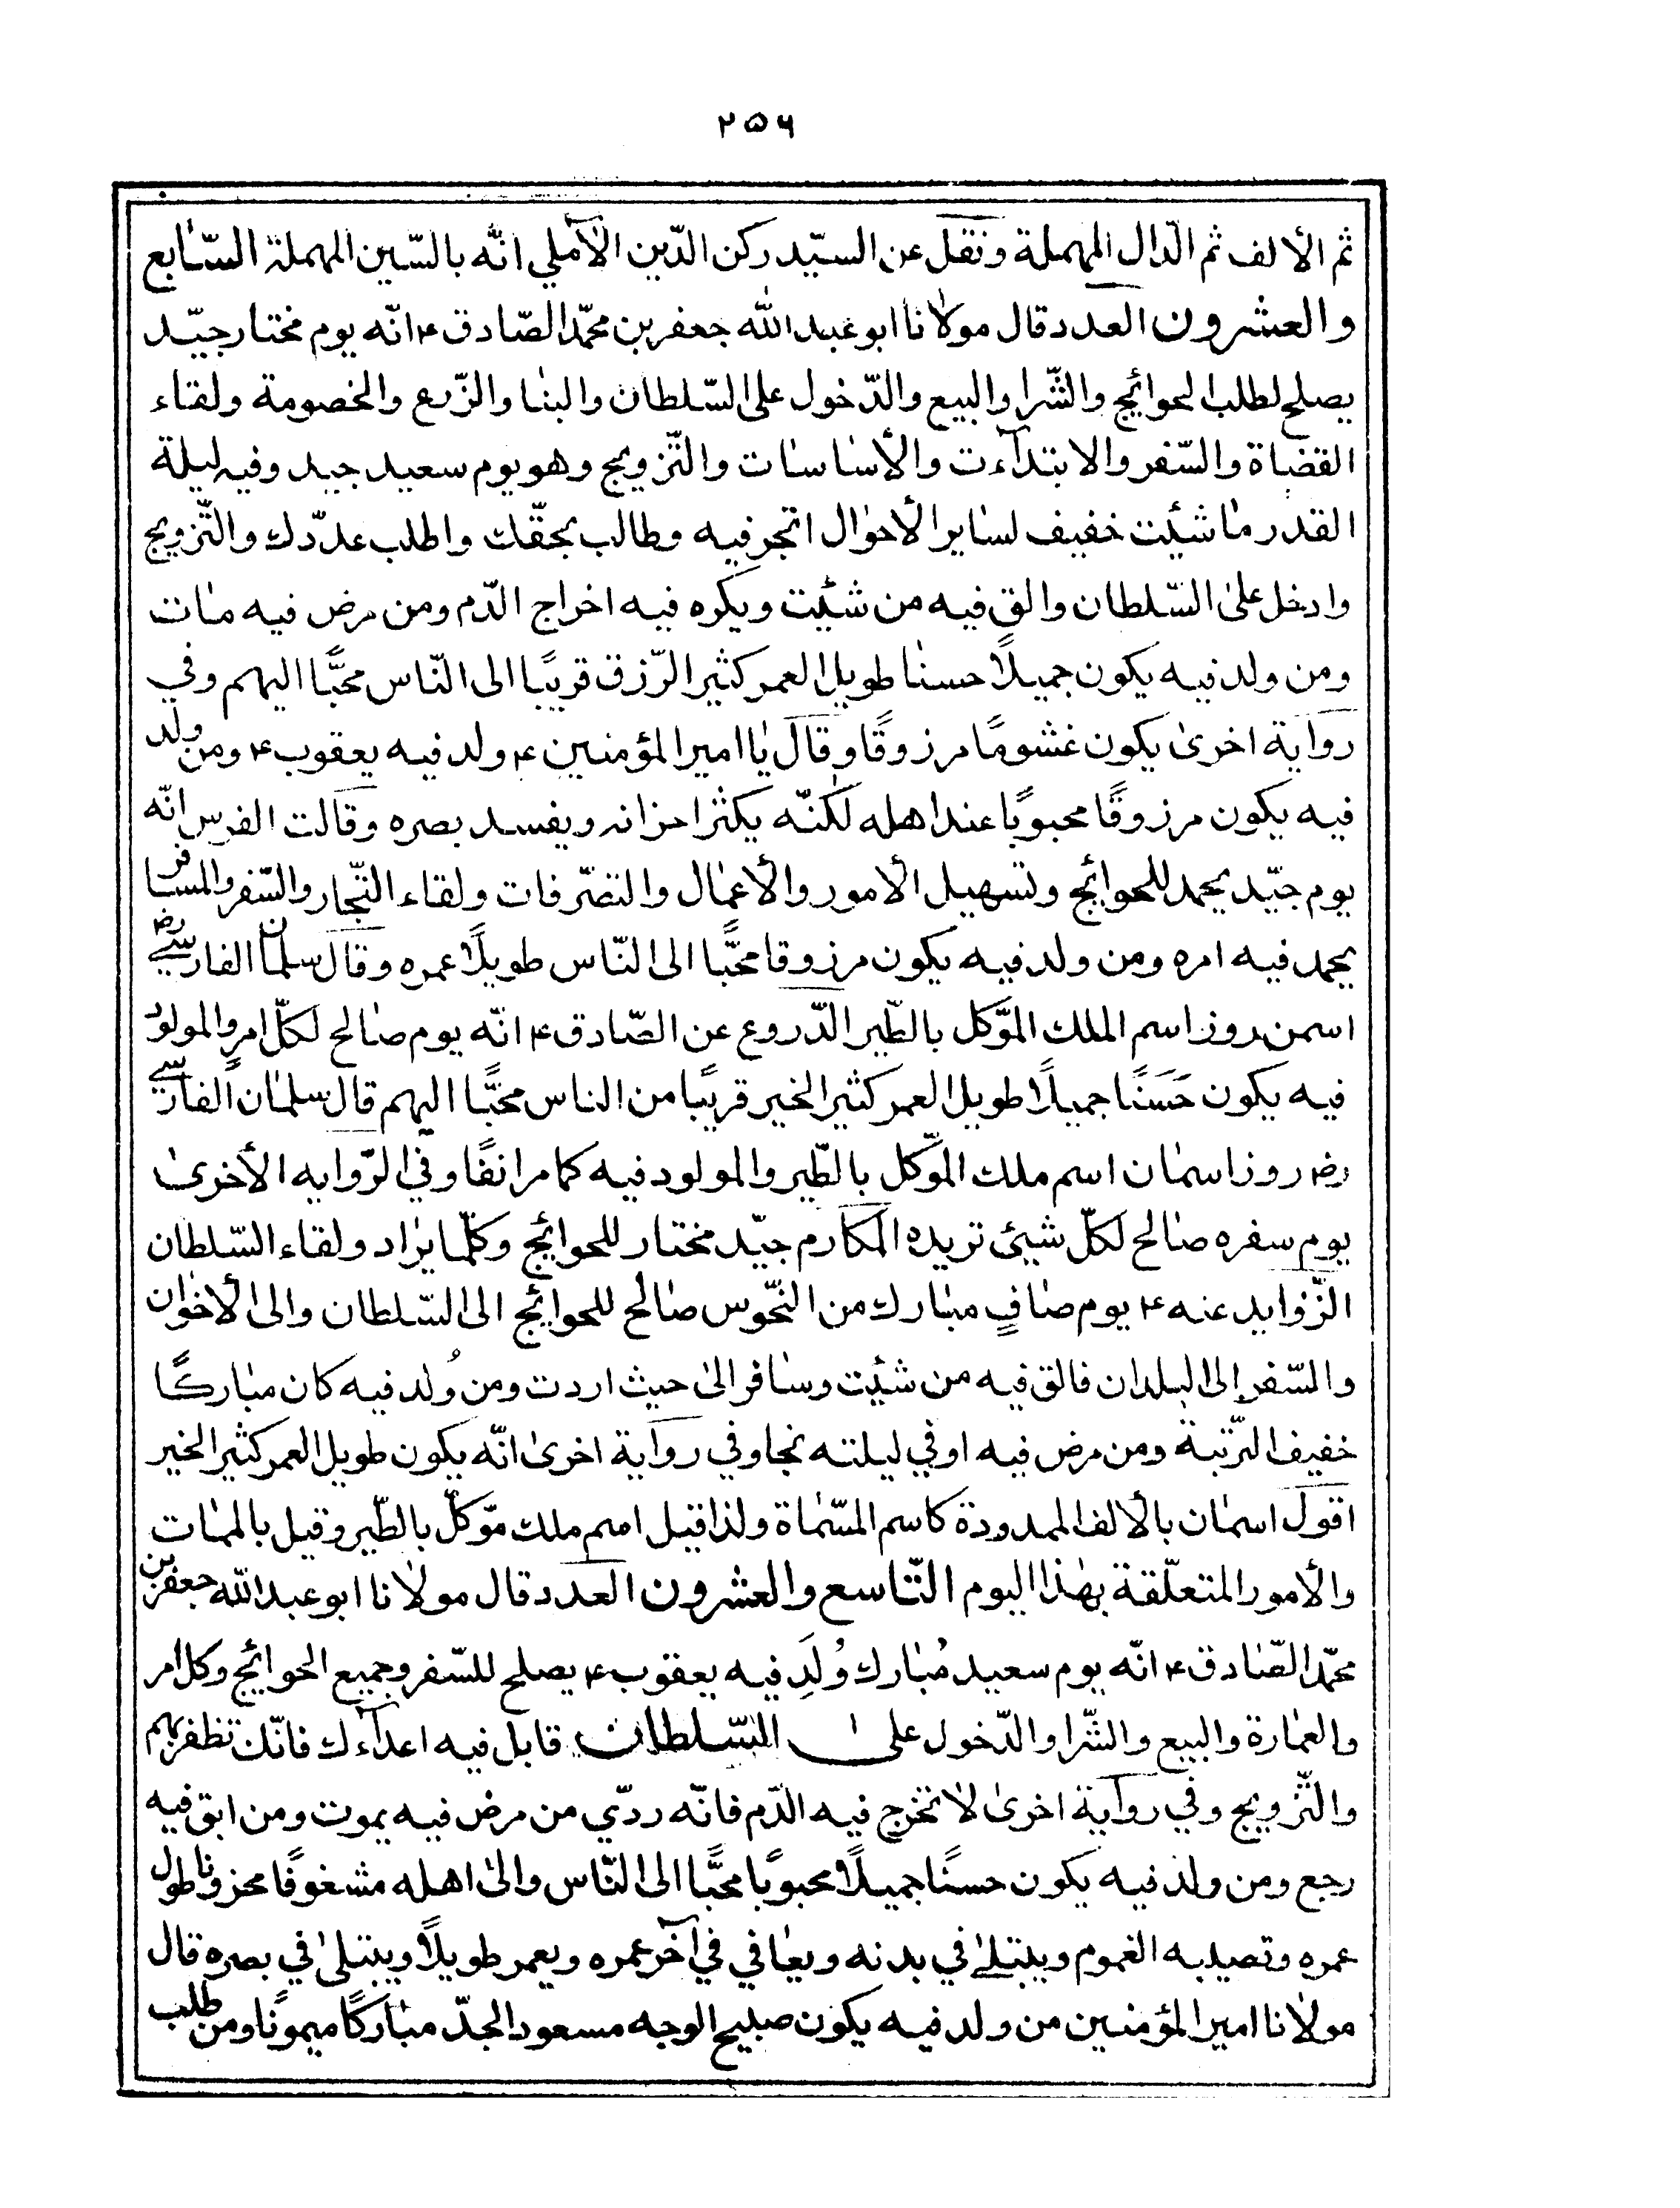 ۲۵۶
ثم الألف ثم الدّال المهملة ونقل عن السيّد ركن الدّين الآملي انّه بالسّين المهملة السّابع
والعشرون العدد قال مولانا ابو عبد الله جعفر بن محمّد الصّادق ۴ انّه يوم مختار جيّد
يصلح لطلب الحوائج والشّرا والبيع والدّخول على السّلطان والبنا والزّرع والخصومة ولقاء
القضاة والسّفر والابتدآءت والأساسات والتّزويج وهو يوم سعيد جيد وفيه ليلة
القدر ما شئت خفيف لساير الأحوال اتجر فيه وطالب بحقّك واطلب عدّوك والتّزويج
وادخل على السّلطان والق فيه من شئت ويكره فيه اخراج الدّم ومن مرض فيه مات
ومن ولد فيه يكون جميلًا حسنا طويل العمر كثير الرّزق قريبًا الى النّاس محبًّا اليهم وفي
رواية اخرى يكون غشومًا مرزوقًا وقال يا امير المؤمنين ۴ ولد فيه يعقوب ۴ ومن ولد
فيه يكون مرزوقًا محبوبًا عند اهله لكنّه يكثر احزانه ويفسد بصره وقالت الفرس انّه
يوم جيّد يحمد للحوائج وتسهيل الأمور والأعمال والتصّرفات ولقاء التّجار والسّفر والمسافر
يحمد فيه امره ومن ولد فيه يكون مرزوقا محبًّا الى النّاس طويلًا عمره وقال سلمان الفارسي رض
اسمن روز اسم الملك الموّكل بالطّير الدّروع عن الصّادق ۴ انّه يوم صالح لكلّ امرٍ والمولود
فيه يكون حَسَنًا جميلًا طويل العمر كثير الخير قريبًا من الناس محبًّا اليهم قال سلمان الفارسي
رض روز اسمان اسم ملك الموّكل بالطّير والمولود فيه كما مر انفًا وفي الرّوايه الأخرى
يوم سفره صالح لكلّ شيئ تريده المكارم جيّد مختار للحوائج وكلّما يراد ولقاء السّلطان
الزّوايد عنه ۴ يوم صافٍ مبارك من النّحوس صالح للحوائج الى السّلطان والى الأخوان
والسّفر إلى البلدان فالق فيه من شئت وسافر الى حيث اردت ومن وُلد فيه كان مباركًا
خفيف التربّية ومن مرض فيه او في ليلته نجا وفي رواية اخرى انّه يكون طويل العمر كثير الخير
اقول اسمان بالألف الممدودة كاسم المسّماة ولذا قيل اسم ملك موّكل بالطّير وقيل بالممات
والأمور المتعلّقة بهذا اليوم التّاسع والعشرون العدد قال مولانا ابو عبد الله جعفر بن
محمّد الصّادق ۴ انّه يوم سعيد مُبارك وُلِدَ فيه يعقوب ۴ يصلح للسّفر وجميع الحوائج وكل امر
والعمارة والبيع والشّرا والدّخول على السّلطان قابل فيه اعدآءك فانّك تظفر بهم
والتّزويج وفي رواية اخرى لا تخرج فيه الدّم فانّه ردّي من مرض فيه يموت ومن ابق فيه
رجع ومن ولد فيه يكون حسنًا جميلًا محبوبًا محبًّا الى النّاس والى اهله مشغوفًا محزونا طول
عمره وتصيبه الغموم ويبتلى في بدنه ويعافي في آخر عمره ويعمر طويلًا ويبتلى في بصره قال
مولانا امير المؤمنين من ولد فيه يكون صبيح الوجه مسعود الجدّ مباركًا ميمونًا ومن طلب